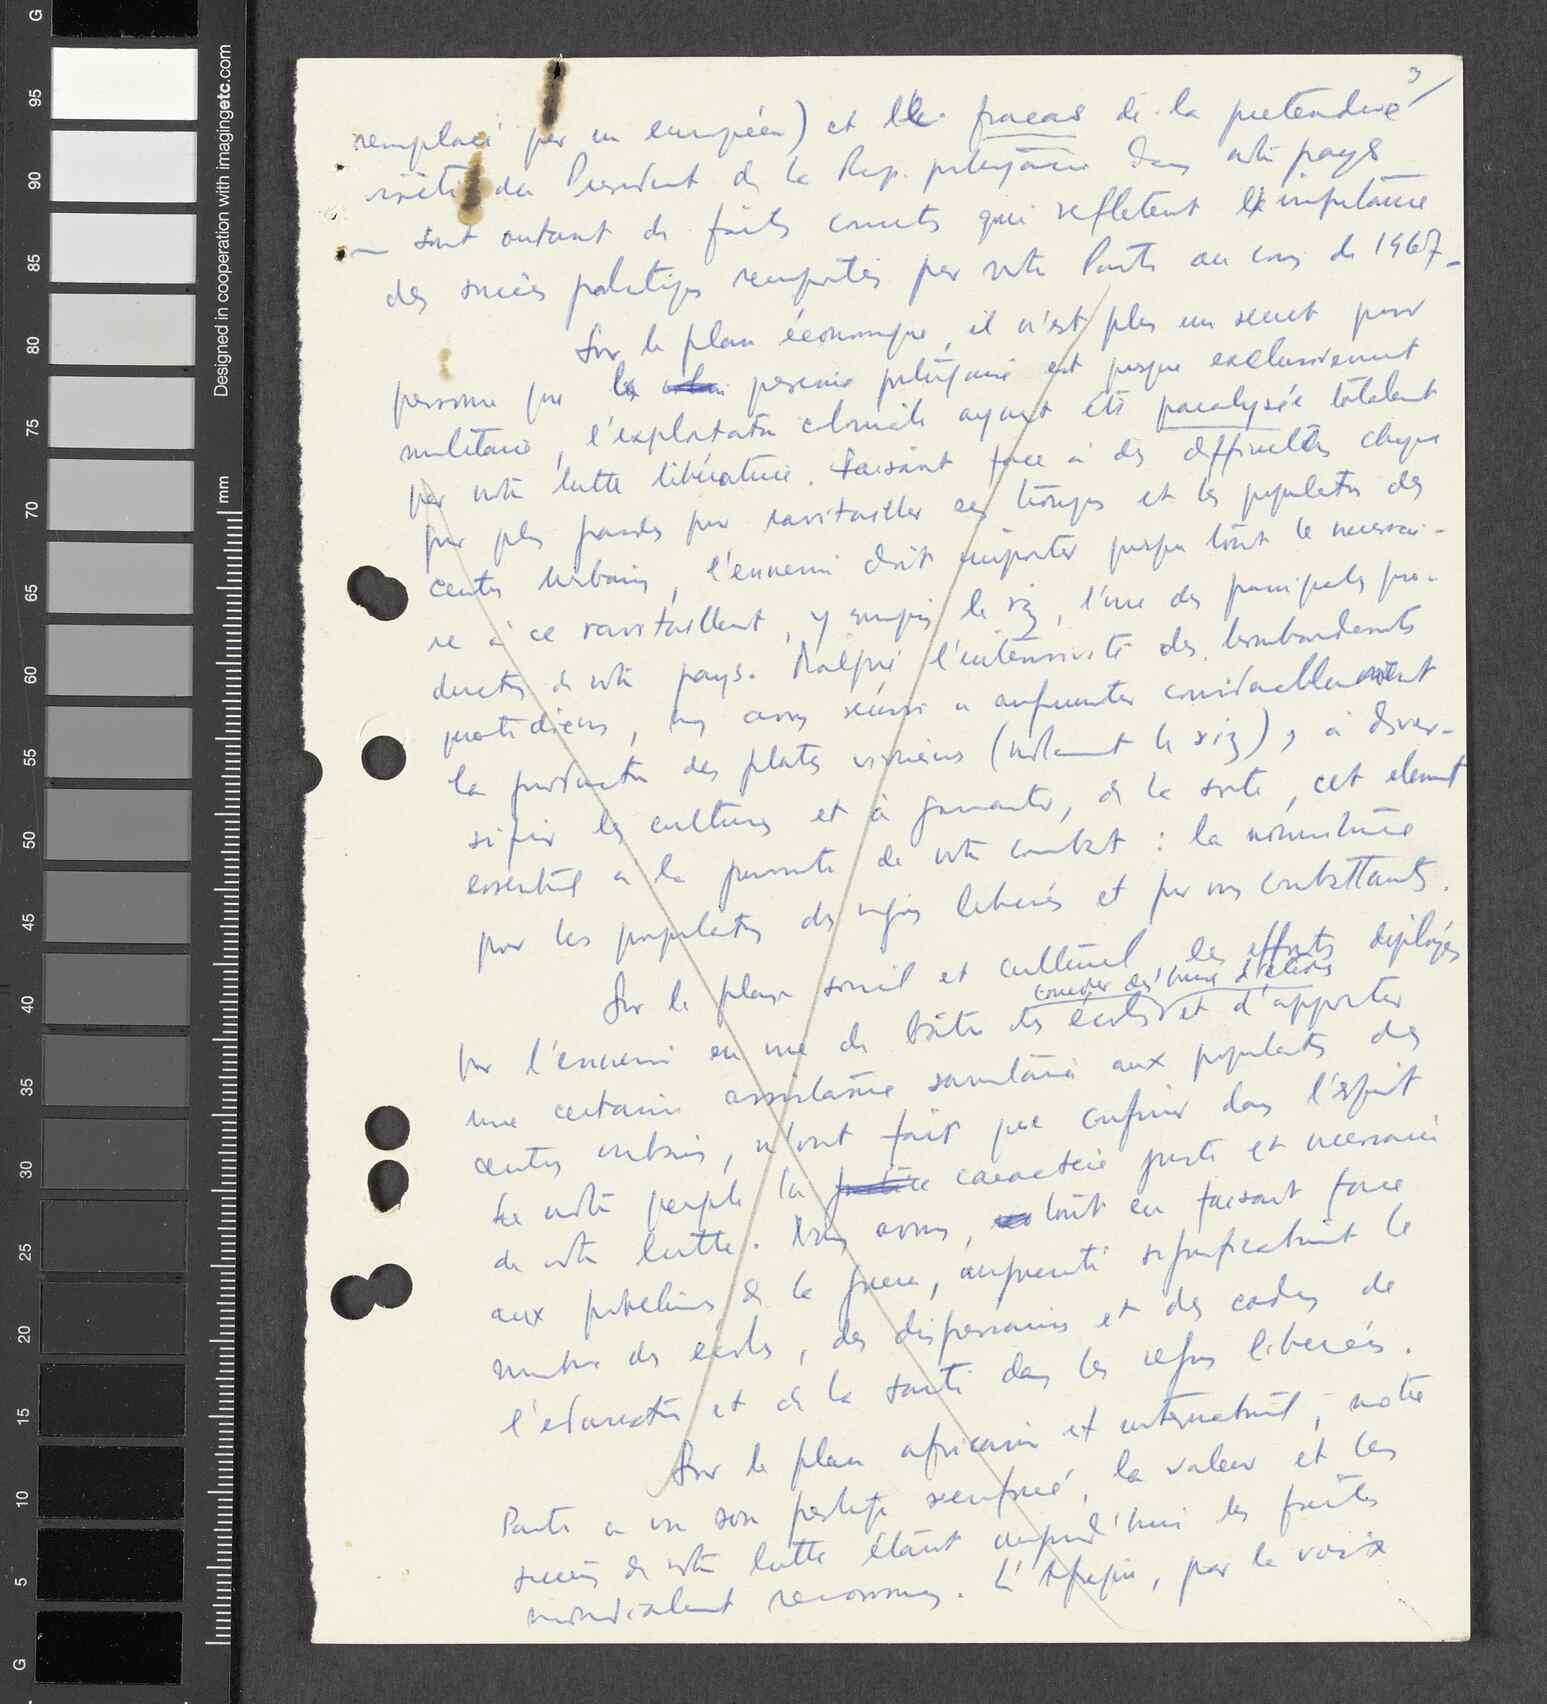 3/
remplacé par un européen) et le fracas de la prétendue
visite du President de la Rep. portugaise dans notre pays
— sont autant de faits concrets qui refletent l'importance
des succès politiques remportés par notre Parti au cours de 1967_
Sur le plan économique, il n'est plus un secret pour
personne que la presence portugaise est presque exclusivement
militaire, l'exploitation coloniale ayant été paralysée totalement
par notre lutte libératrice. Faisant face à des difficultés chaque
jour plus grandes pour ravitailler ses troupes et les populations des
centres urbains, l'ennemi doit importer presque tout le necessai-
re à ce ravitaillement, y compris le riz, l'une des principales pro-
ductions de notre pays. Malgré l'intensivité des bombardements
quotidiens, nous avons réussi à augmenter considerablement
la production des plantes vivrières (notamment le riz), à diver-
sifier les cultures et à garantir, de la sorte, cet element
essentiel à la poursuite de notre combat : la nourriture
pour les populations des regions liberées et pour nos combattants.
Sur le plan social et culturel, les efforts deployés
par l'ennemi en vue de bâtir des écoles et d'apporter
une certaine assistance sanitaire aux populations des
centres urbains, n'ont fait que confirmer dans l'esprit
de notre peuple le caractère juste et necessaire
de notre lutte. Nous avons, tout en faisant face
aux problèmes de la guerre, augmenté significativement le
nombre des écoles, des dispensaires et des cadres de
l'education et de la santé dans les regions liberées.
Sur le plan africain et international, notre
Parti a vu son prestige renforcé, la valeur et les
succès de notre lutte étant aujourd'hui des faits
mondialement reconnus. L'Afrique, par la voix
Designed in cooperation with imagingetc.com
mm
G
95
90
85
80
75
70
65
60
55
50
45
40
35
30
25
20
15
10
5
G